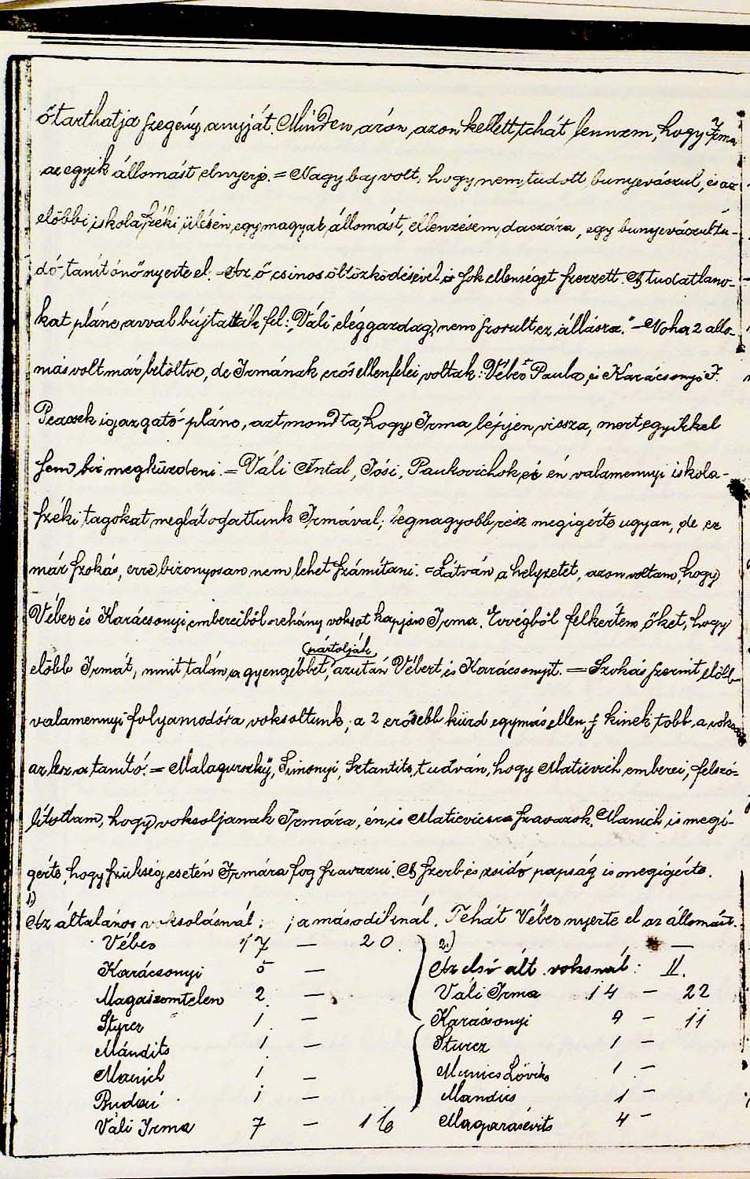 ő tarthatja szegény anyját. Minden árón azon kellett tehát lennem, hogy Irma
az egyik állomást elnyerje. = Nagy baj volt, hogy nem tudott bunyevászul, és az
előbbi iskolaszéki ülésen, egy magyar állomást, ellenzésem daczára, egy bunyevászul tu-
dó, tanítónő nyerte el. - Az ő csinos öltözködésével is sok ellenséget szerzett. A tudatlano-
kat pláne avval bújtatták fel: „Váli elég gazdag, nem szorult ez állásra." - Noha 2 állo-
más volt már betöltve, de Irmának erős ellenfelei voltak: Véber Paula, és Karácsonyi J.
igazgató pláne, azt mondta, hogy Irma lépjen vissza, mert egyikkel
sem bir megküzdeni. = Váli Antal, Jósi, Paukovichok és én valamennyi iskola-
széki tagokat meglátogattunk Irmával; legnagyobb rész megigérte ugyan, de ez
már szokás, erre bizonyosan nem lehet számítani. = Látván a helyzetet, azon voltam, hogy
Véber és Karácsonyi embereiből néhány voksot kapjon Irma. Evvégből felkértem őket, hogy
előbb Irmát, mint talán a gyengébbet, pártolják azután Vébert és Karácsonyit. = Szokás szerint előbb
valamennyi folyamodóra voksoltunk, a 2 erősebb küzd egymás ellen, s kinek több a voksa
az lesz a tanító. = Malagurszky, Simonyi, Sztantits, tudván, hogy Matievich emberei, felszó-
lítottam, hogy voksoljanak Irmára, én is Matievicsra szavazok. Manich is megi-
gérte, hogy szükség esetén Irmára fog szavazni. A szerb és zsidó papság is megigérte.
1)
Az általános voksolásnál: ; a másodiknál. Tehát Véber nyerte el az állomást.
Véber 17 — 20.
Karácsonyi 5 —
Magaszemtelen 2 —
1 —
Mándits 1 —
Manich 1 —
Budai 1 —
Váli Irma 7 — 16
2.)
Az első ált. voksnál: II.
Váli Irma 14 — 22
Karácsonyi 9 — 11
Sturcz 1 —
Munics 1 —
Mandics 1 —
Magarasévits 4 —